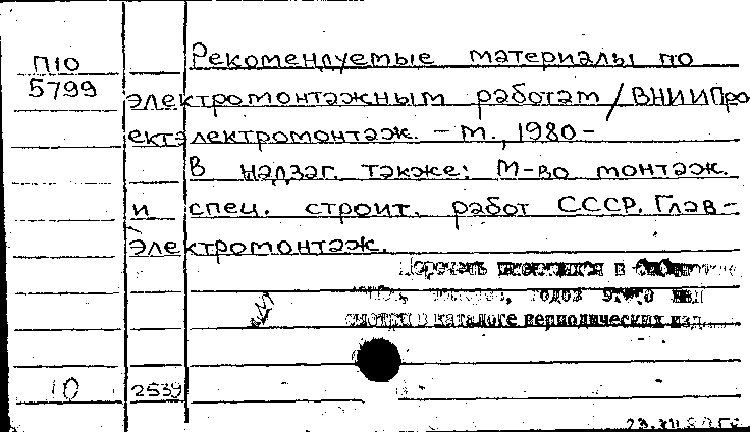 П10
5799
Рекомендуемые материалы по
электромонтажным работам / ВНИИПро
ектэлектромонтаж. – М., 1980 –
В надзаг. также: М-во монтаж.
и спец. строит. работ СССР. Глав-
электромонтаж.
Перечень имеющихся в библиотеке
годов этого изд
смотри в каталоге периодических изд
10 2539